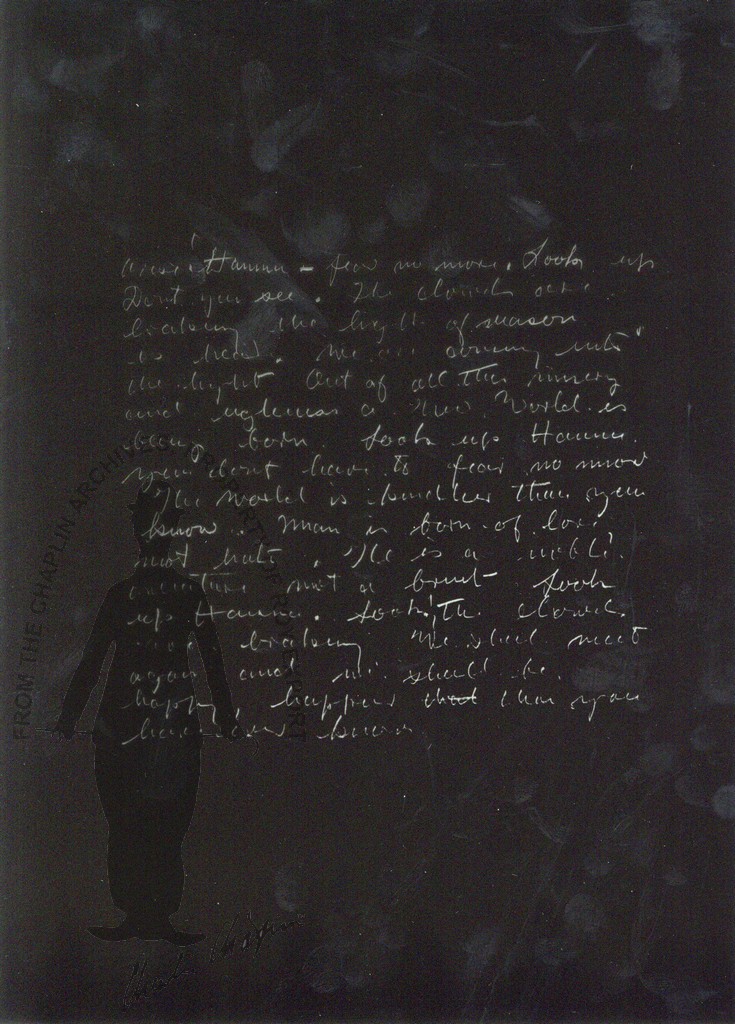 Hannu - fear no more. Look up
Dont you see. The clouds are
breaking the light of reason
is here. We are coming into
the light Out of all this misery
and uglness a new World is
being born. Look up Hannu.
you dont have to fear no more
The World is kindlier than you
know. Man is born of love
not hate. He is a noble
creature not a brut Look
up Hannu. Look! The clouds
are breaking We shall meet
again and we shall be
happy, happier that than you
have ever known
FROM THE CHAPLIN ARCHIVES PROPERTY OF ROY EXPORT
Charlie Chaplin